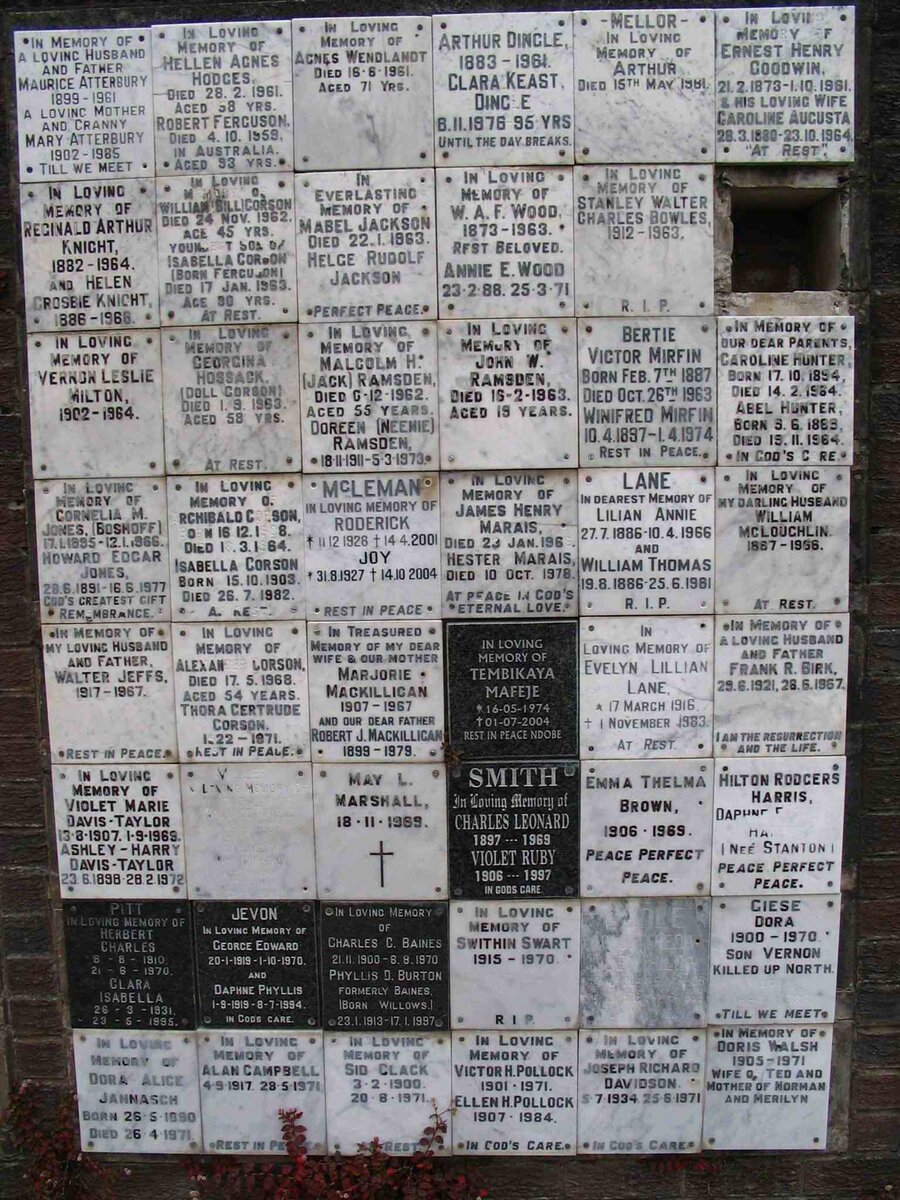 In Memory of
a Loving Husband
and Father
Maurice Atterbury
1899-1961
a Loving Mother
and Granny
Mary Atterbury
1902-1985
Till We Meet
In Loving
Memory of
Hellen Agnes
Hodges,
Died 28.2.1961.
Aged 58 Yrs.
Robert Ferguson.
Died 4.10.1959.
in Australia.
Aged 93 Yrs.
In Loving
Memory of
Agnes Wendlandt
Died 16.6.1961.
Aged 71 Yrs.
Arthur Dingle,
1883-1961.
Clara Keast,
8.11.1976 95 Yrs
Until the Day Breaks.
-Mellor-
In Loving
Memory of
Arthur
Died 15th May 1961.
In
Memory of
Ernest Henry
Goodwin,
21.2.1873-1.10.1961.
& His Loving Wife
Caroline Augusta
28.3.1880-23.10.1964.
"At Rest".
In Loving
Memory of
Reginald Arthur
Knight,
1882-1964.
and Helen
Crosbie Knight,
1886-1966.
In Loving
William (Bill) Corson
Died 24 Nov. 1962.
Age 45 Yrs.
Isabella Corson
(Born Ferguson)
Died 17 Jan. 1963.
Age 90 Yrs.
At Rest.
In
Everlasting
Memory of
Mabel Jackson
Died 22.1.1963.
Helge Rudolf
Jackson
Perfect Peace.
In Loving
Memory of
W. A. F. Wood,
1873-1963.
Rest Beloved.
Annie E. Wood
23-2-88. 25-3-71
In Loving
Memory of
Stanley Walter
Charles Bowles,
1912-1963.
R. I. P.
In Loving
Memory of
Vernon Leslie
Milton,
1902-1964.
In Loving
Memory of
Georgina
Hossack,
(Doll Corson)
Died 1.9.1963.
Aged 58 Yrs.
At Rest.
In Loving
Memory of
Malcolm H.
(Jack) Ramsden,
Died 6-12-1962.
Aged 55 Years.
Doreen (Neenie)
Ramsden,
18-11-1911-5-3-1973.
In Loving
Memory of
John W.
Ramsden,
Died 16-2-1963.
Aged 19 Years.
Bertie
Victor Mirfin
Born Feb. 7th 1887
Died Oct. 26th 1963
Winifred Mirfin
10.4.1897-1.4.1974
Rest in Peace.
In Memory of
Our Dear Parents,
Caroline Hunter,
Born 17.10.1894,
Died 14.2.1964.
Abel Hunter,
Died 19.11.1964.
In God's Care.
In Loving
Memory of
Cornelia M.
Jones, (Boshoff)
17.1.1895-12.1.1966.
Howard Edgar
Jones,
28.6.1891-16.6.1977
God's Greatest Gift
Remembrance.
In Loving
Memory of
Isabella Corson
Born 15.10.1903.
Died 26.7.1982.
McLeman
In Loving Memory of
Roderick
* 11.12.1928 † 14.4.2001
Joy
* 31.8.1927 † 14.10.2004
Rest in Peace
In Loving
Memory of
James Henry
Marais,
Hester Marais,
Died 10 Oct. 1978.
At Peace in God's
Eternal Love.
Lane
In Dearest Memory of
Lilian Annie
27.7.1886-10.4.1966
and
William Thomas
19.8.1886-25.6.1981
R. I. P.
In Loving
Memory of
My Darling Husband
William
McLouchlin.
1887-1966.
At Rest.
In Memory of
My Loving Husband
and Father,
Walter Jeffs,
1917-1967.
Rest in Peace.
In Loving
Memory of
Died 17.5.1968.
Aged 54 Years.
Thora Gertrude
Corson.
In Treasured
Memory of My Dear
Wife & Our Mother
Marjorie
Mackillican
1907-1967
and Our Dear Father
Robert J. Mackillican
1899-1979.
In Loving
Memory of
Tembikaya
Mafeje
*16-05-1974
†01-07-2004
Rest in Peace Ndobe
In
Loving Memory of
Evelyn Lillian
Lane,
* 17 March 1916.
† 1 November 1983.
At Rest.
In Memory of
a Loving Husband
and Father
Frank R. Birk,
29.6.1921, 26.6.1967.
I am the Resurrection
and the Life.
In Loving
Memory of
Violet Marie
Davis-Taylor
13-8-1907. 1-9-1969.
Ashley-Harry
Davis-Taylor
23.6.1898-28.2.1972
May L.
Marshall,
18-11-1969.
SMITH
In Loving Memory of
CHARLES LEONARD
1897 --- 1969
VIOLET RUBY
1906 --- 1997
IN GODS CARE.
Emma Thelma
Brown,
1906-1969.
Peace Perfect
Peace.
Hilton Rodgers
Harris,
(Neé Stanton)
Peace Perfect
Peace.
Pitt
In Loving Memory of
Herbert
Charles
8-8-1910.
21-6-1970.
Clara
Isabella
26-3-1931.
23-5-1995.
Jevon
In Loving Memory of
George Edward
20-1-1919-1-10-1970.
and
Daphne Phyllis
1-9-1919-8-7-1994.
In Gods Care.
In Loving Memory
of
Charles C. Baines
21.11.1900-6.8.1970
Phyllis D. Burton
Formerly Baines,
(Born Willows.)
23.1.1913-17.1.1997
In Loving
Memory of
Swithin Swart
1915-1970.
R I P
Giese
Dora
1900-1970.
Son Vernon
Killed Up North.
Till We Meet
In Loving
Memory of
Dora Alice
Jannasch
Born 26-5-1890
Died 26-4-1971
In Loving
Memory of
Alan Campbell
4-9-1917. 28-5-1971
Rest in Peace
In Loving
Memory of
Sid Clack
3-2-1900.
20-8-1971.
In Loving
Memory of
Victor H. Pollock
1901-1971.
Ellen H. Pollock
1907-1984.
In God's Care.
In Loving
Memory of
Joseph Richard
Davidson.
In God's Care.
In Memory of
Doris Walsh
1905-1971
Wife of Ted and
Mother of Norman
and Merilyn